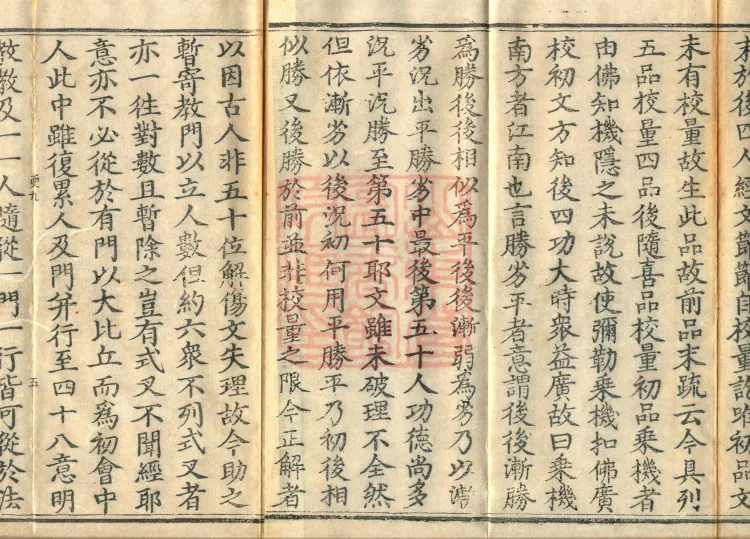 末於後四人經文節節自校量訖唯初品文
未有校量故生此品故前品末疏云今具列
五品校量四品後隨喜品校量初品乗機者
由佛知機隱之未說故使彌勒乗機扣佛廣
校初文方知後四功大時衆益廣故曰乗機
南方者江南也言勝劣平者意謂後後漸勝
為勝後後相似為平後後漸弱為劣乃以漸
劣況出平勝劣中最後第五十人功德尚多
況平況勝至第五十耶文雖未破理不全然
但依漸劣以後況初何用平勝平乃初後相
似勝又後勝於前並非校量之限今正解者
以因古人非五十位解傷文失理故今助之
暫寄教門以立人數但約六衆不列式叉者
亦一徃對數且暫除之豈有式叉不聞經耶
意亦不必從於有門以大比丘而為初會中
人此中雖復累人及門并行至四十八意明
更九 五
教教及一一人隨從一門一行皆可從於法